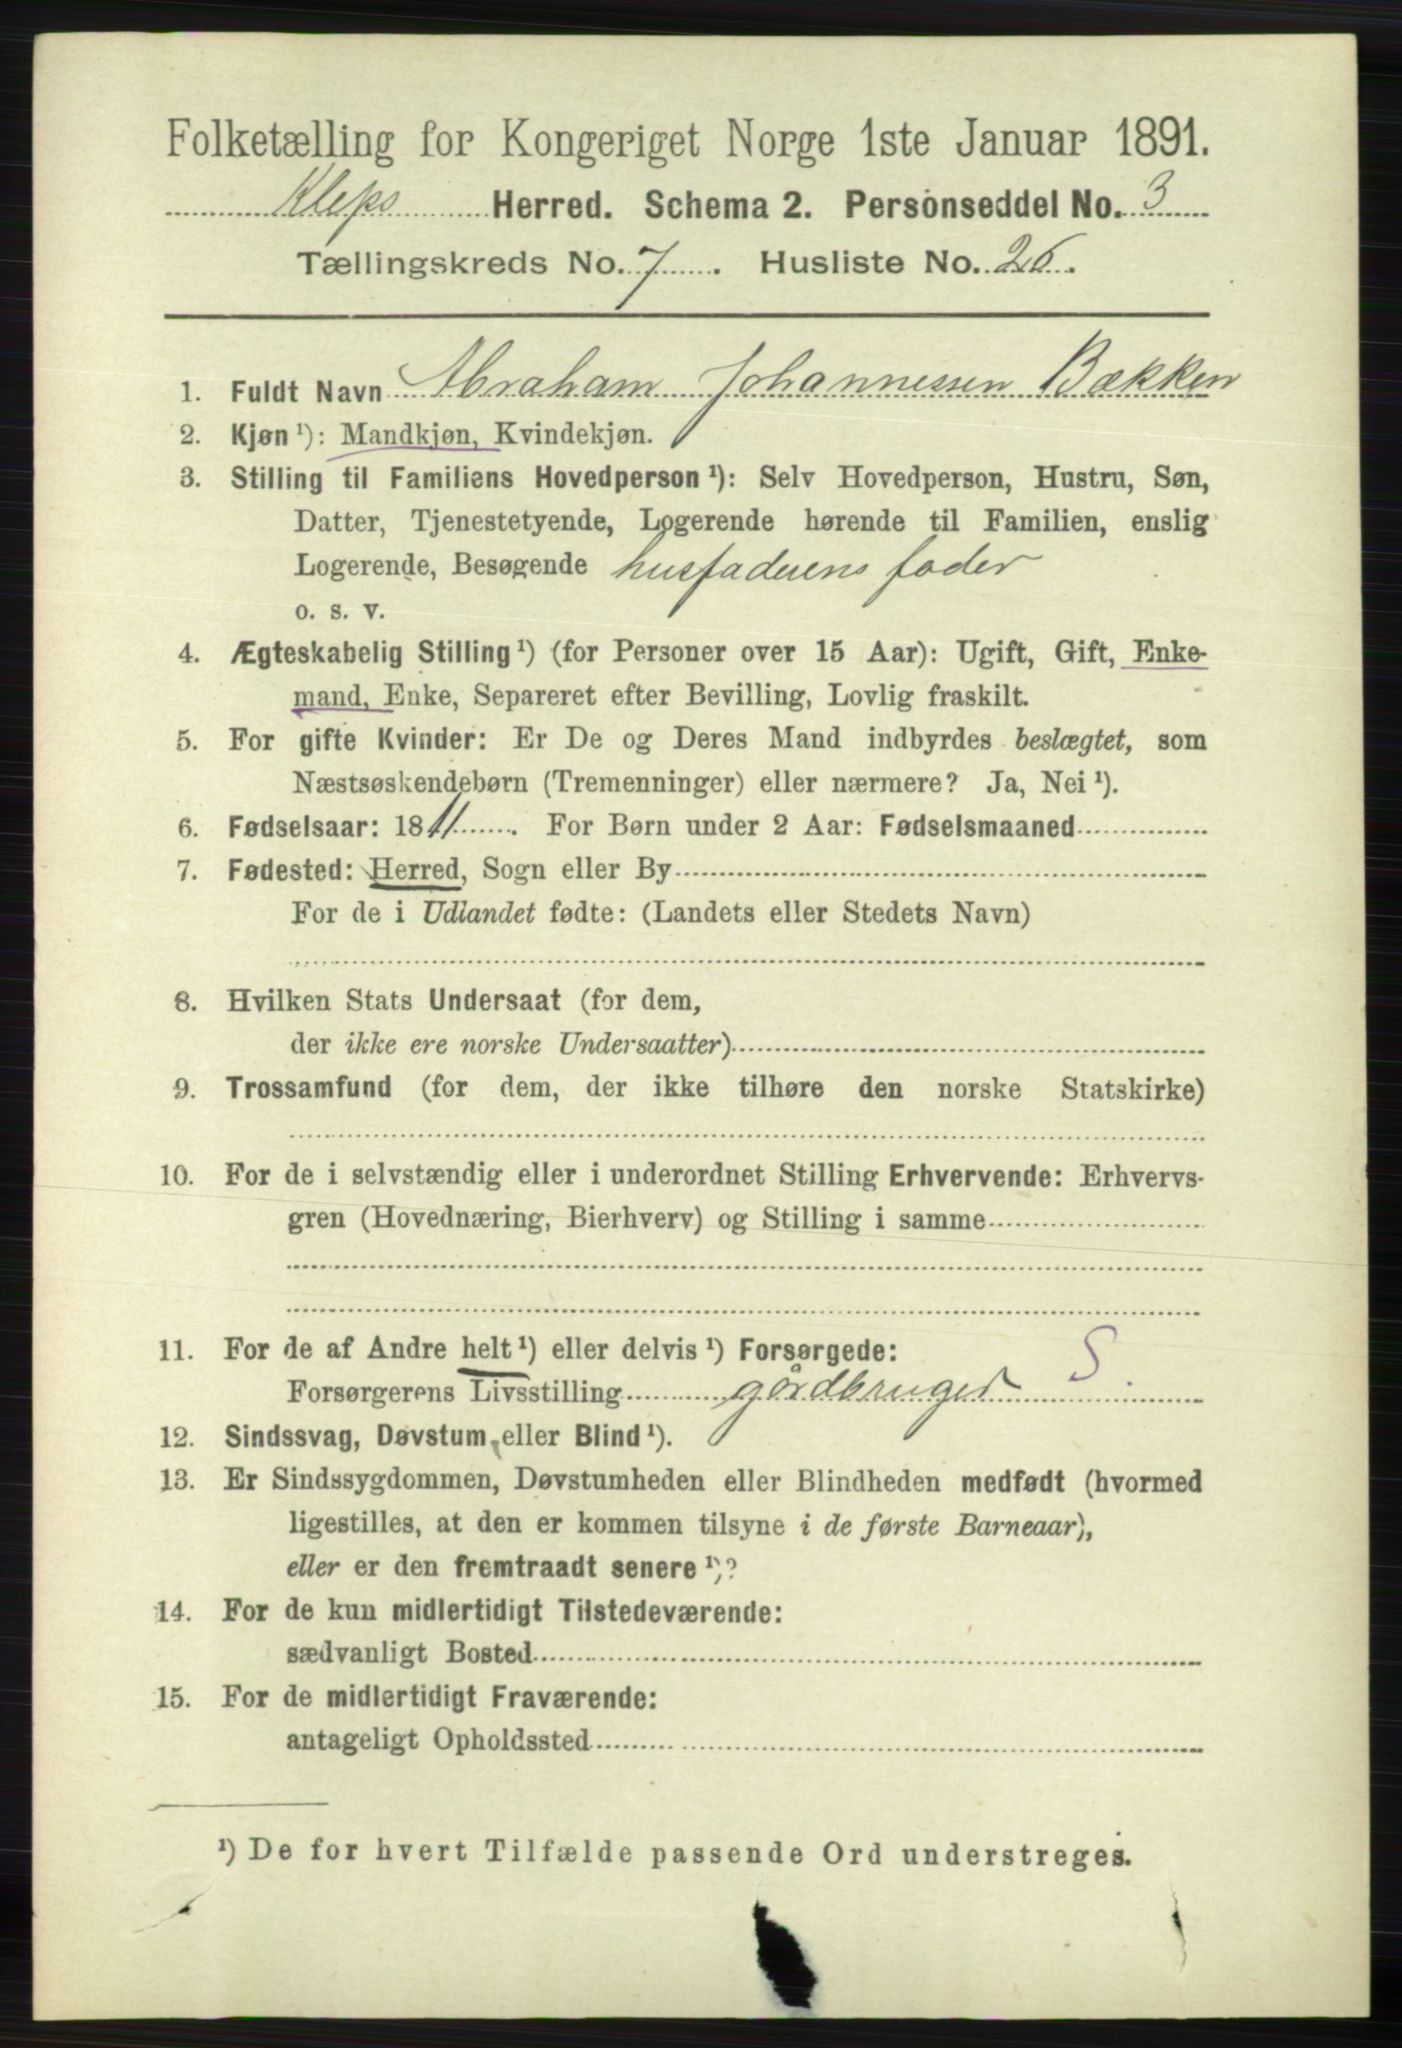 Folketælling for Kongeriget Norge 1ste Januar 1891.
Kleps Herred. Schema 2. Personseddel No. 3
Tællingskreds No. 7. Husliste No. 26.
1. Fuldt Navn Abraham Johannessen Bækken
2. Kjøn ¹): Mandkjøn, Kvindekjøn.
3. Stilling til Familiens Hovedperson ¹): Selv Hovedperson, Hustru, Søn,
Datter, Tjenestetyende, Logerende hørende til Familien, enslig
Logerende, Besøgende husfaderens fader
o. s. v.
4. Ægteskabelig Stilling ¹) (for Personer over 15 Aar): Ugift, Gift, Enke-
mand, Enke, Separeret efter Bevilling, Lovlig fraskilt.
5. For gifte Kvinder: Er De og Deres Mand indbyrdes beslægtet, som
Næstsøskendebørn (Tremenninger) eller nærmere? Ja, Nei ¹).
6. Fødselsaar: 1811. For Børn under 2 Aar: Fødselsmaaned
7. Fødested: Herred, Sogn eller By
For de i Udlandet fødte: (Landets eller Stedets Navn)
8. Hvilken Stats Undersaat (for dem,
der ikke ere norske Undersaatter)
9. Trossamfund (for dem, der ikke tilhøre den norske Statskirke)
10. For de i selvstændig eller i underordnet Stilling Erhvervende: Erhvervs-
gren (Hovednæring, Bierhverv) og Stilling i samme
11. For de af Andre helt ¹) eller delvis ¹) Forsørgede:
Forsørgerens Livsstilling gårdbruger S
12. Sindssvag, Døvstum eller Blind ¹).
13. Er Sindssygdommen, Døvstumheden eller Blindheden medfødt (hvormed
ligestilles, at den er kommen tilsyne i de første Barneaar),
eller er den fremtraadt senere ¹)?
14. For de kun midlertidigt Tilstedeværende:
sædvanligt Bosted
15. For de midlertidigt Fraværende:
antageligt Opholdssted
¹) De for hvert Tilfælde passende Ord understreges.